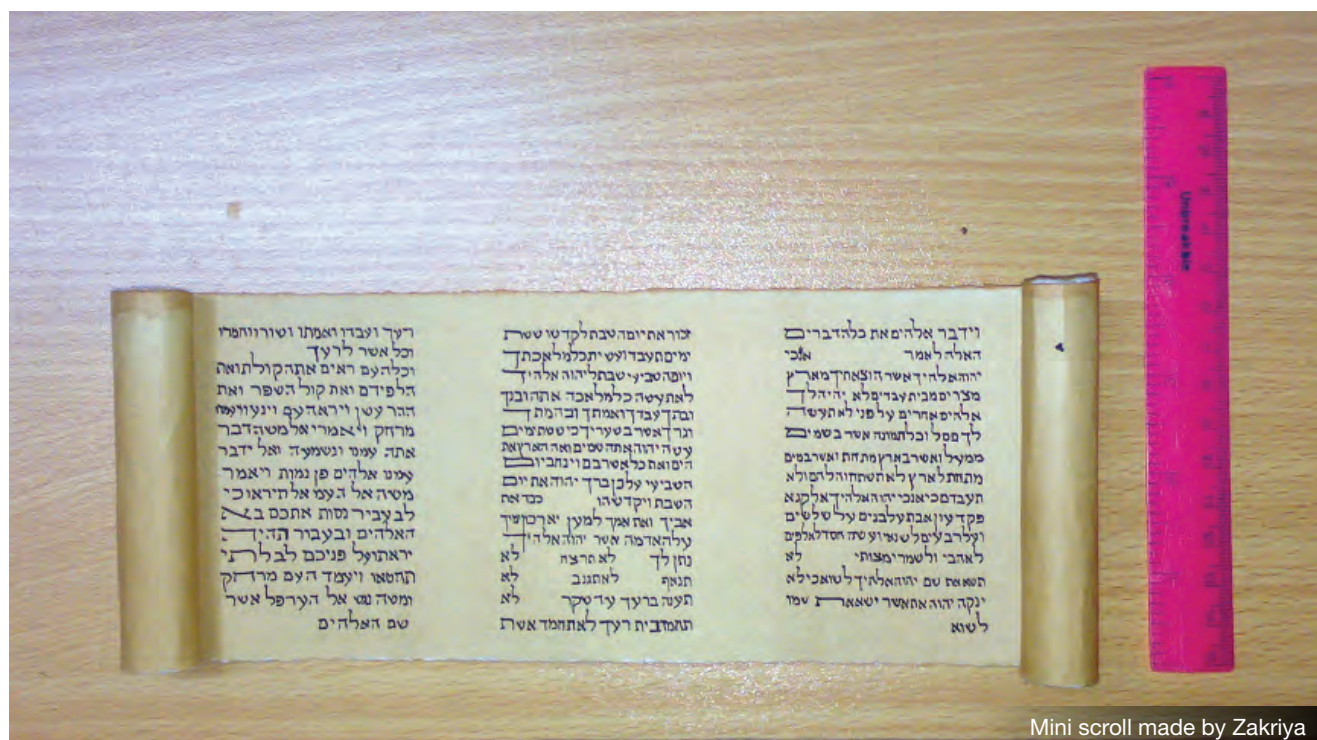 וידבר אלהים את כל הדברים
האלה לאמר אנכי
יהוה אלהיך אשר הוצאתיך מארץ
מצרים מבית עבדים לא יהיה לך
אלהים אחרים על פני לא תעשה
לך פסל וכל תמונה אשר בשמים
ממעל ואשר בארץ מתחת ואשר במים
מתחת לארץ לא תשתחוה להם ולא
תעבדם כי אנכי יהוה אלהיך אל קנא
פקד עון אבת על בנים על שלשים
ועל רבעים לשנאי ועשה חסד לאלפים
לאהבי ולשמרי מצותי לא
תשא את שם יהוה אלהיך לשוא כי לא
ינקה יהוה את אשר ישא את שמו
לשוא
זכור את יום השבת לקדשו ששת
ימים תעבד ועשית כל מלאכתך
ויום השביעי שבת ליהוה אלהיך
לא תעשה כל מלאכה אתה ובנך
ובתך עבדך ואמתך ובהמתך
וגרך אשר בשעריך כי ששת ימים
עשה יהוה את השמים ואת הארץ את
הים ואת כל אשר בם וינח ביום
השביעי על כן ברך יהוה את יום
השבת ויקדשהו כבד את
אביך ואת אמך למען יארכון ימיך
על האדמה אשר יהוה אלהיך
נתן לך לא תרצח לא
תנאף לא תגנב לא
תענה ברעך עד שקר לא
תחמד בית רעך לא תחמד אשת
רעך ועבדו ואמתו ושורו וחמרו
וכל אשר לרעך
וכל העם ראים את הקולת ואת
הלפידם ואת קול השפר ואת
ההר עשן וירא העם וינעו ויעמדו
מרחק ויאמרו אל משה דבר
אתה עמנו ונשמעה ואל ידבר
עמנו אלהים פן נמות ויאמר
משה אל העם אל תיראו כי
לבעביר נסות אתכם בא
האלהים ובעבור תהיה
יראתו על פניכם לבלתי
תחטאו ויעמד העם מרחק
ומשה נגש אל הערפל אשר
שם האלהים
Unbreakable
Mini scroll made by Zakriya